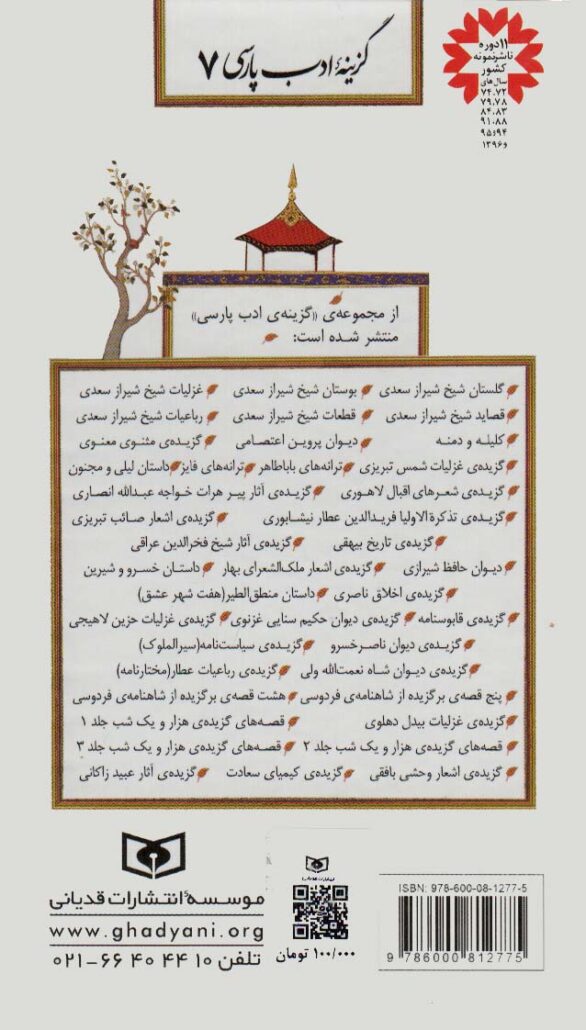 ۱۱دوره
ناشرنمونه
کشور
سال‌های
۷۴،۷۲
۷۹،۷۸
۸۴،۸۳
۹۱،۸۸
۹۴و۹۵
و۱۳۹۶
گزینهٔ ادب پارسی ۷
از مجموعه‌ی «گزینه‌ی ادب پارسی»
منتشر شده است:
گلستان شیخ شیراز سعدی بوستان شیخ شیراز سعدی غزلیات شیخ شیراز سعدی
قصاید شیخ شیراز سعدی قطعات شیخ شیراز سعدی رباعیات شیخ شیراز سعدی
کلیله و دمنه دیوان پروین اعتصامی گزیده‌ی مثنوی معنوی
گزیده‌ی غزلیات شمس تبریزی ترانه‌های باباطاهر ترانه‌های فایز داستان لیلی و مجنون
گزیده‌ی شعرهای اقبال لاهوری گزیده‌ی آثار پیر هرات خواجه عبدالله انصاری
گزیده‌ی تذکرة الاولیا فریدالدین عطار نیشابوری گزیده‌ی اشعار صائب تبریزی
گزیده‌ی تاریخ بیهقی گزیده‌ی آثار شیخ فخرالدین عراقی
دیوان حافظ شیرازی گزیده‌ی اشعار ملک‌الشعرای بهار داستان خسرو و شیرین
گزیده‌ی اخلاق ناصری داستان منطق‌الطیر(هفت شهر عشق)
گزیده‌ی قابوسنامه گزیده‌ی دیوان حکیم سنایی غزنوی گزیده‌ی غزلیات حزین لاهیجی
گزیده‌ی دیوان ناصرخسرو گزیده‌ی سیاست‌نامه(سیرالملوک)
گزیده‌ی دیوان شاه نعمت‌الله ولی گزیده‌ی رباعیات عطار(مختارنامه)
پنج قصه‌ی برگزیده از شاهنامه‌ی فردوسی هشت قصه‌ی برگزیده از شاهنامه‌ی فردوسی
گزیده‌ی غزلیات بیدل دهلوی قصه‌های گزیده‌ی هزار و یک شب جلد ۱
قصه‌های گزیده‌ی هزار و یک شب جلد ۲ قصه‌های گزیده‌ی هزار و یک شب جلد ۳
گزیده‌ی اشعار وحشی بافقی گزیده‌ی کیمیای سعادت گزیده‌ی آثار عبید زاکانی
موسسهٔ انتشارات قدیانی
www.ghadyani.org
تلفن ۱۰ ۴۴ ۴۰ ۶۶-۰۲۱
۱۰۰/۰۰۰ تومان
ISBN: 978-600-08-1277-5
9 786000 812775